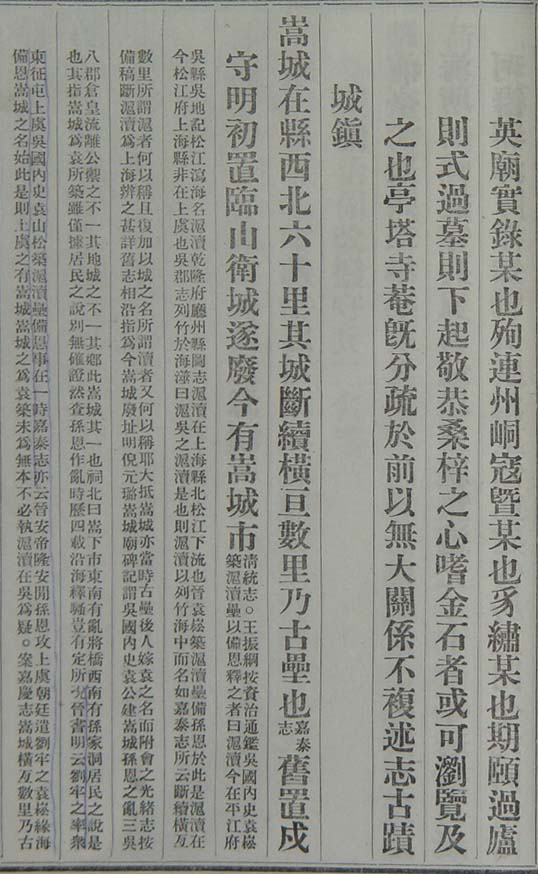 英廟實錄某也殉連州峒寇暨某也豸繡某也期頤過廬
則式過墓則下起敬恭桑梓之心嗜金石者或可瀏覽及
之也亭塔寺菴旣分疏於前以無大關係不複述志古蹟
城鎮
嵩城在縣西北六十里其城斷續橫亘數里乃古壘也嘉泰志舊置戍
守明初置臨山衛城遂廢今有嵩城市清統志。王振綱按資治通鑑吳國內史袁崧
築滬瀆壘以備恩釋之者曰滬瀆今在平江府
吳縣吳地記松江瀉海名滬瀆乾隆府廳州縣圖志滬瀆在上海縣北松江下流也晉袁崧築滬瀆壘備孫恩於此是滬瀆在
今松江府上海縣非在上虞也吳郡志列竹於海澨曰滬吳之滬瀆是也則滬瀆以列竹海中而名如嘉泰志所云斷續橫亙
數里所謂滬者何以稱且復加以城之名所謂瀆者又何以稱耶大抵嵩城亦當時古壘後人嫁袁之名而附會之光緒志按
備稿斷滬瀆爲上海辨之甚詳舊志相沿指爲今嵩城廢址明倪元璐嵩城廟碑記謂吳國內史袁公建嵩城孫恩之亂三吳
八郡倉皇流離公禦之不一其地城之不一其鄉此嵩城其一也祠北曰嵩下市東南有亂將橋西南有孫家洞居民之說是
也其指嵩城爲袁所築雖僅據居民之說別無確證然查孫恩作亂時歷四載沿海繹騷豈有定所晉書明云劉牢之率衆
東征屯上虞吳國內史袁山松築滬瀆壘備恩事在一時嘉泰志亦云晉安帝隆安間孫恩攻上虞朝廷遣劉牢之袁崧緣海
備恩嵩城之名始此是則上虞之有嵩城嵩城之爲袁築未爲無本不必執滬瀆在吳爲疑。案嘉慶志嵩城橫亙數里乃古